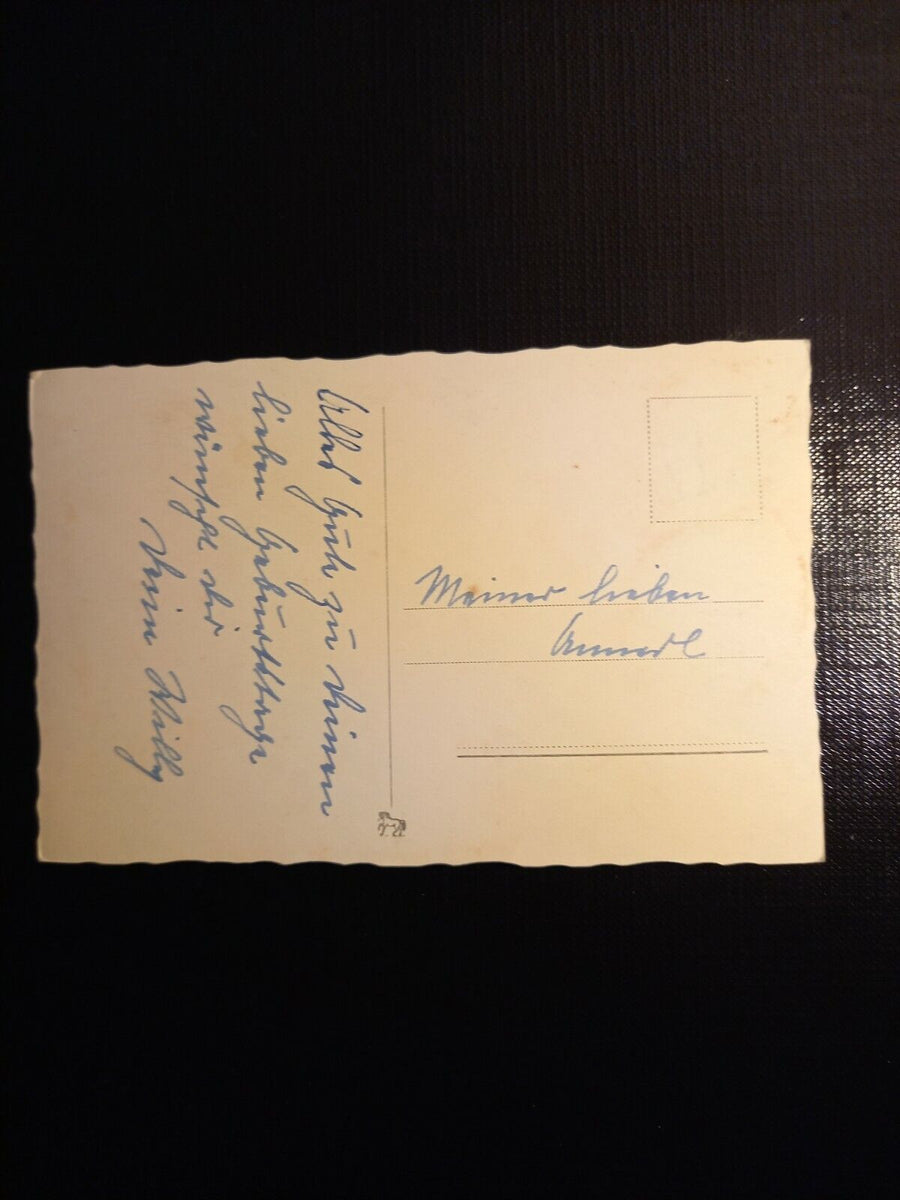 Alles Gute zu Deinem
lieben Geburtstage
wünsche dir
Dein Willy
Meiner lieben
Annerl